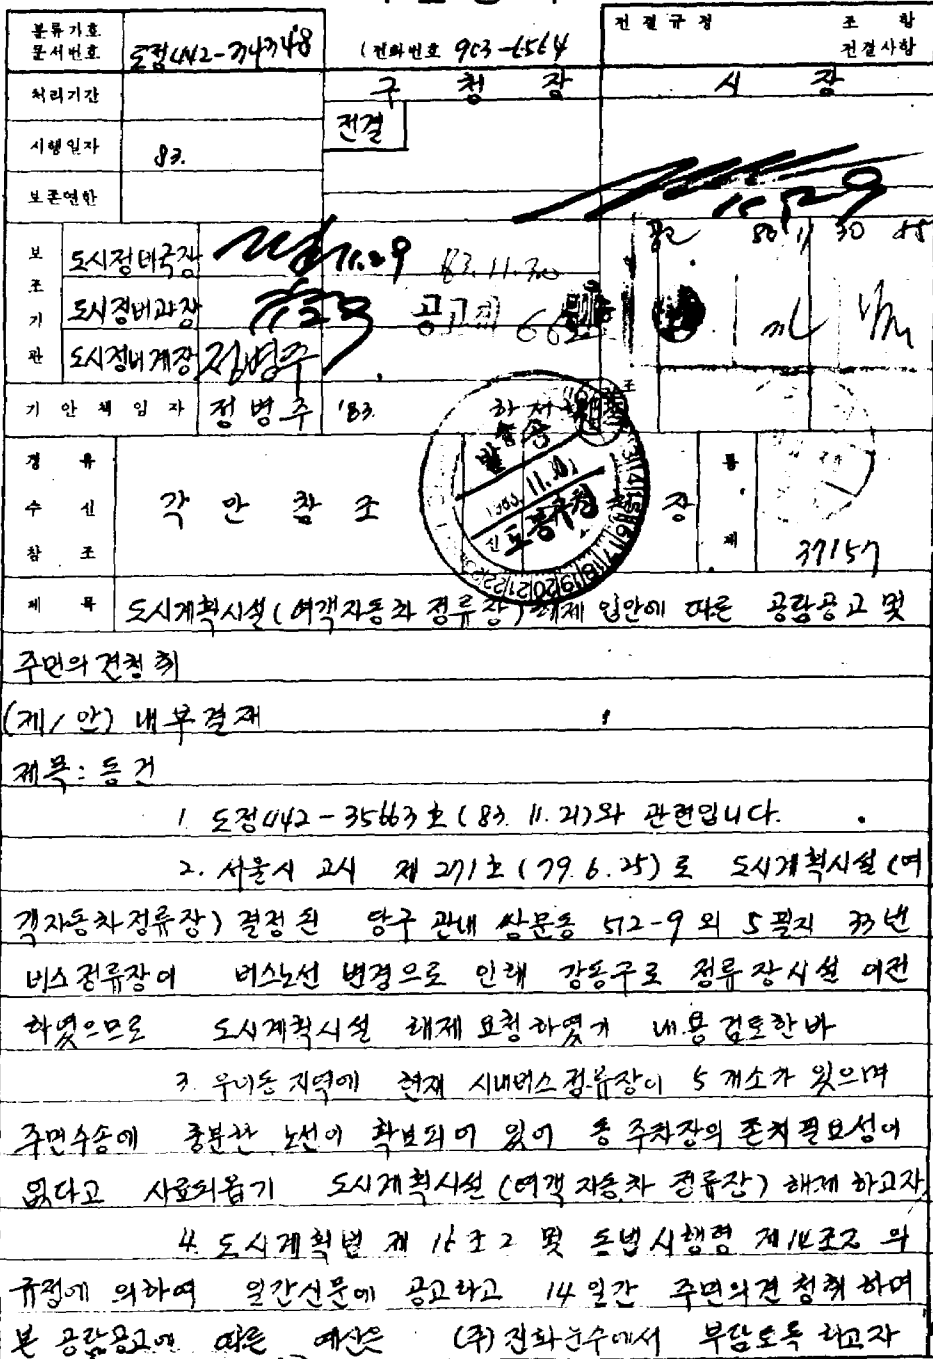 분류기호
문서번호 도정442-
(전화번호 903-6564
전결규정 조 항
전결사항
처리기간
구 청 장
시 장
전결
시행일자 83.
11.29
보존연한
보조기관
도시정비국장 11.29
83.11.30
도시정비과장
공고 제 66
도시정비계장 정병주
기안책임자 정병주 '83.
경 유
수 신 각 안 참 조
장
참 조
통 제
발송
11.
도봉구청
37157
제 목 도시계획시설(여객자동차 정류장) 해제 입안에 따른 공람공고 및
주민의견청취
(제1안) 내부결재
제목: 동건
1. 도정442-35663호(83. 11. 21)와 관련입니다.
2. 서울시 고시 제 271호(79. 6. 25)로 도시계획시설(여
객자동차정류장) 결정된 당구 관내 쌍문동 512-9 외 5필지 33번
버스정류장이 버스노선 변경으로 인해 강동구로 정류장시설 이전
하였으므로 도시계획시설 해제 요청하였기 내용 검토한바
3. 우이동 지역에 현재 시내버스 정류장이 5개소가 있으며
주민수송에 충분한 노선이 확보되어 있어 동 주차장의 존치 필요성이
없다고 사료되옵기 도시계획시설(여객자동차 정류장) 해제 하고자
4. 도시계획법 제 16조 2 및 동법시행령 제14조 의
규정에 의하여 일간신문에 공고하고 14일간 주민의견 청취하며
본 공람공고에 따른 예산은 (주)진화운수에서 부담토록 하고자